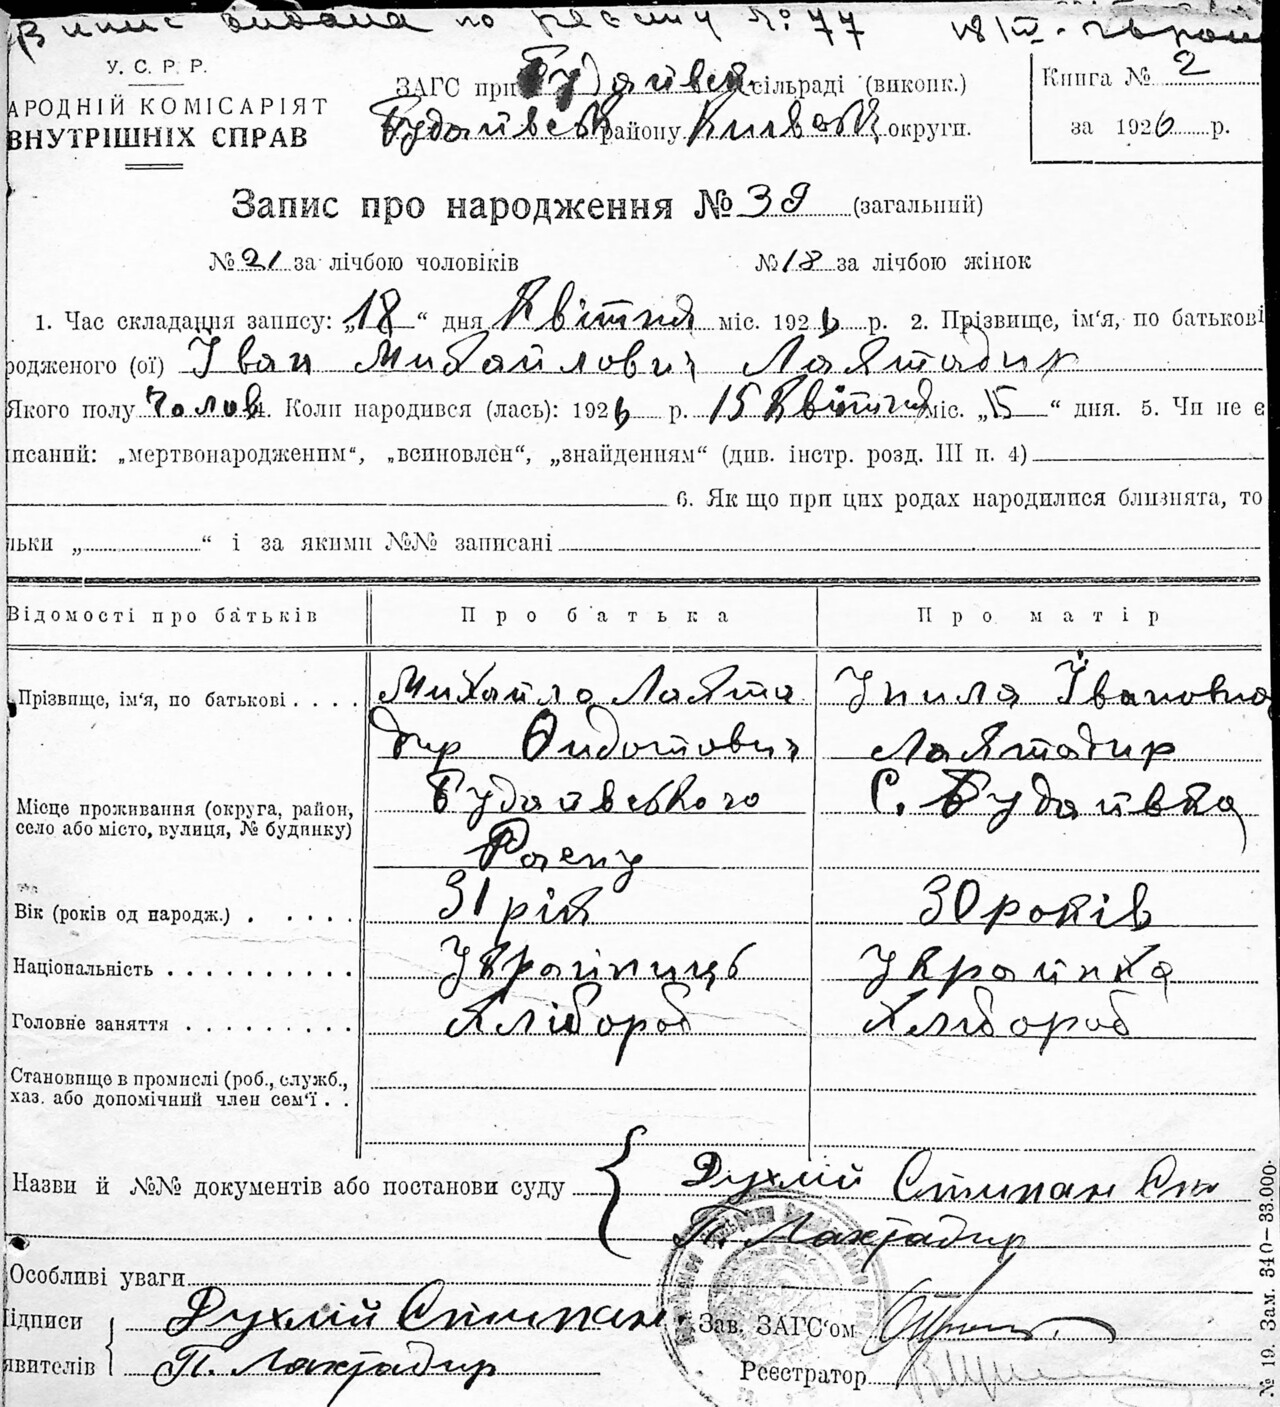 по № 77
У. С. Р. Р.
АРОДНІЙ КОМІСАРІЯТ
ВНУТРІШНІХ СПРАВ
ЗАГС при Будаївск. сільраді (викопк.)
Будаївськ району Київськ округи.
Книга № 2
за 1926 р.
Запис про народження № 39 (загальний)
№ 21 за лічбою чоловіків № 18 за лічбою жінок
1. Час складання запису: „18“ дня Квітня міс. 1926 р. 2. Прізвище, ім'я, по батькові
родженого (ої) Іван Михайлович
Якого полу Чолов 4. Коли народився (лась): 1926 р. 15 Квітня міс. „15“ дня. 5. Чи не є
писаний: „мертвонародженим“, „всиновлен“, „знайденням“ (див. інстр. розд. III п. 4)
6. Як що при цих родах народилися близнята, то
льки „ “ і за якими №№ записані
Відомості про батьків Про батька Про матір
Прізвище, ім'я, по батькові . . . . Михайло Лахта Униля Івановна
дир Федотович Лахтадир
Місце проживання (округа, район, село або місто, вулиця, № будинку) Будаївського С. Будаївка
Раену
Вік (років од народж.) . . . . . 31 рік 30 років
Національність . . . . . . . . . . Україниць Українка
Головне заняття . . . . . . . . . Хлібороб Хлібороб
Становище в промислі (роб., служб.,
хаз. або допомічний член сем'ї . .
Назви й №№ документів або постанови суду Духлій Стипан
П. Лахтадир
Особливі уваги
ідписи Духлій Стипан
явителів П. Лахтадир
Зав. ЗАГС'ом
Реєстратор
№ 19. Зам. 340—33.000.